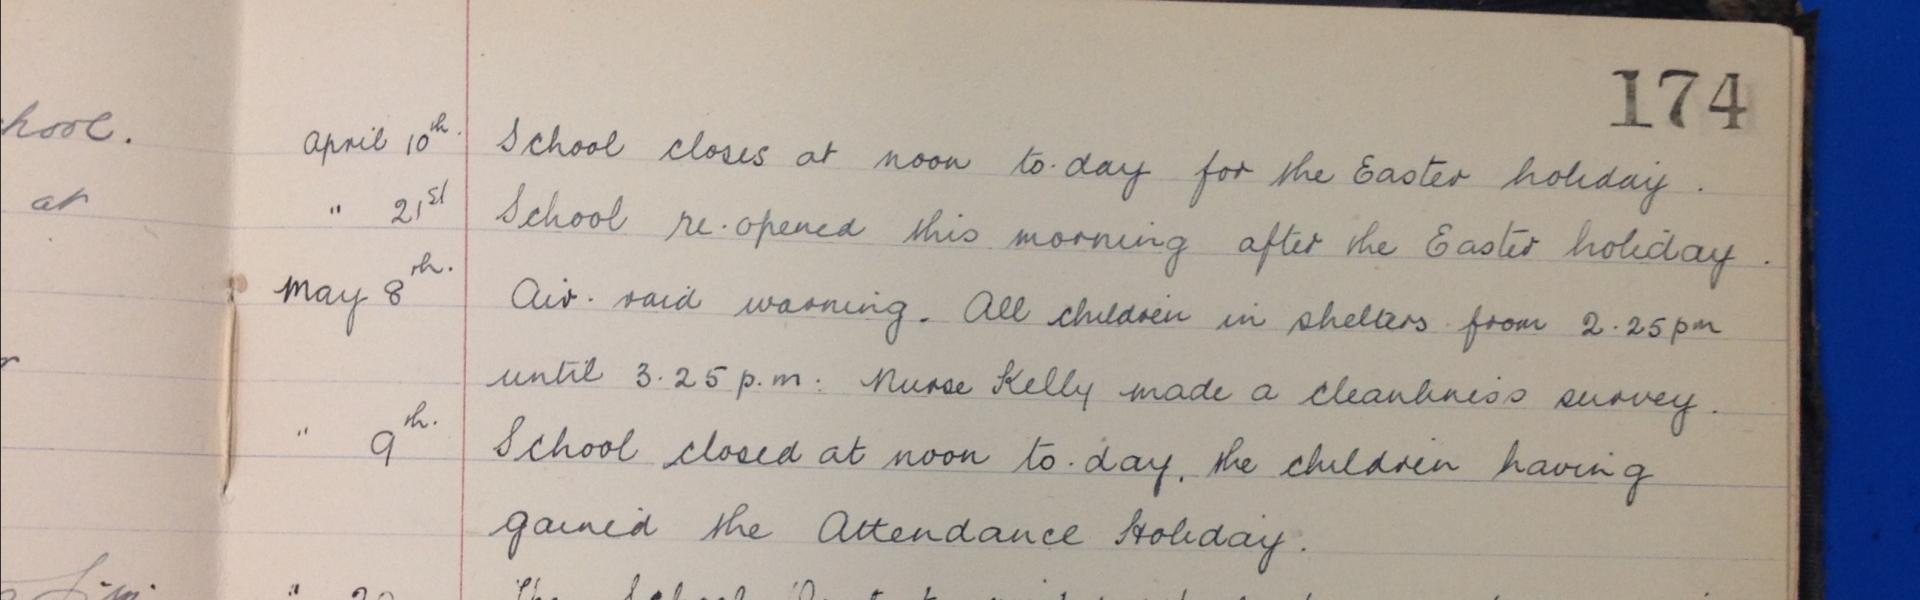 174
hool.
April 10th. School closes at noon to-day for the Easter holiday.
at
" 21st School re-opened this morning after the Easter holiday.
May 8th. Air-raid warning. All children in shelters from 2.25pm
until 3.25 p.m. Nurse Kelly made a cleanliness survey.
" 9th. School closed at noon to-day, the children having
gained the Attendance Holiday.
" 20 The School